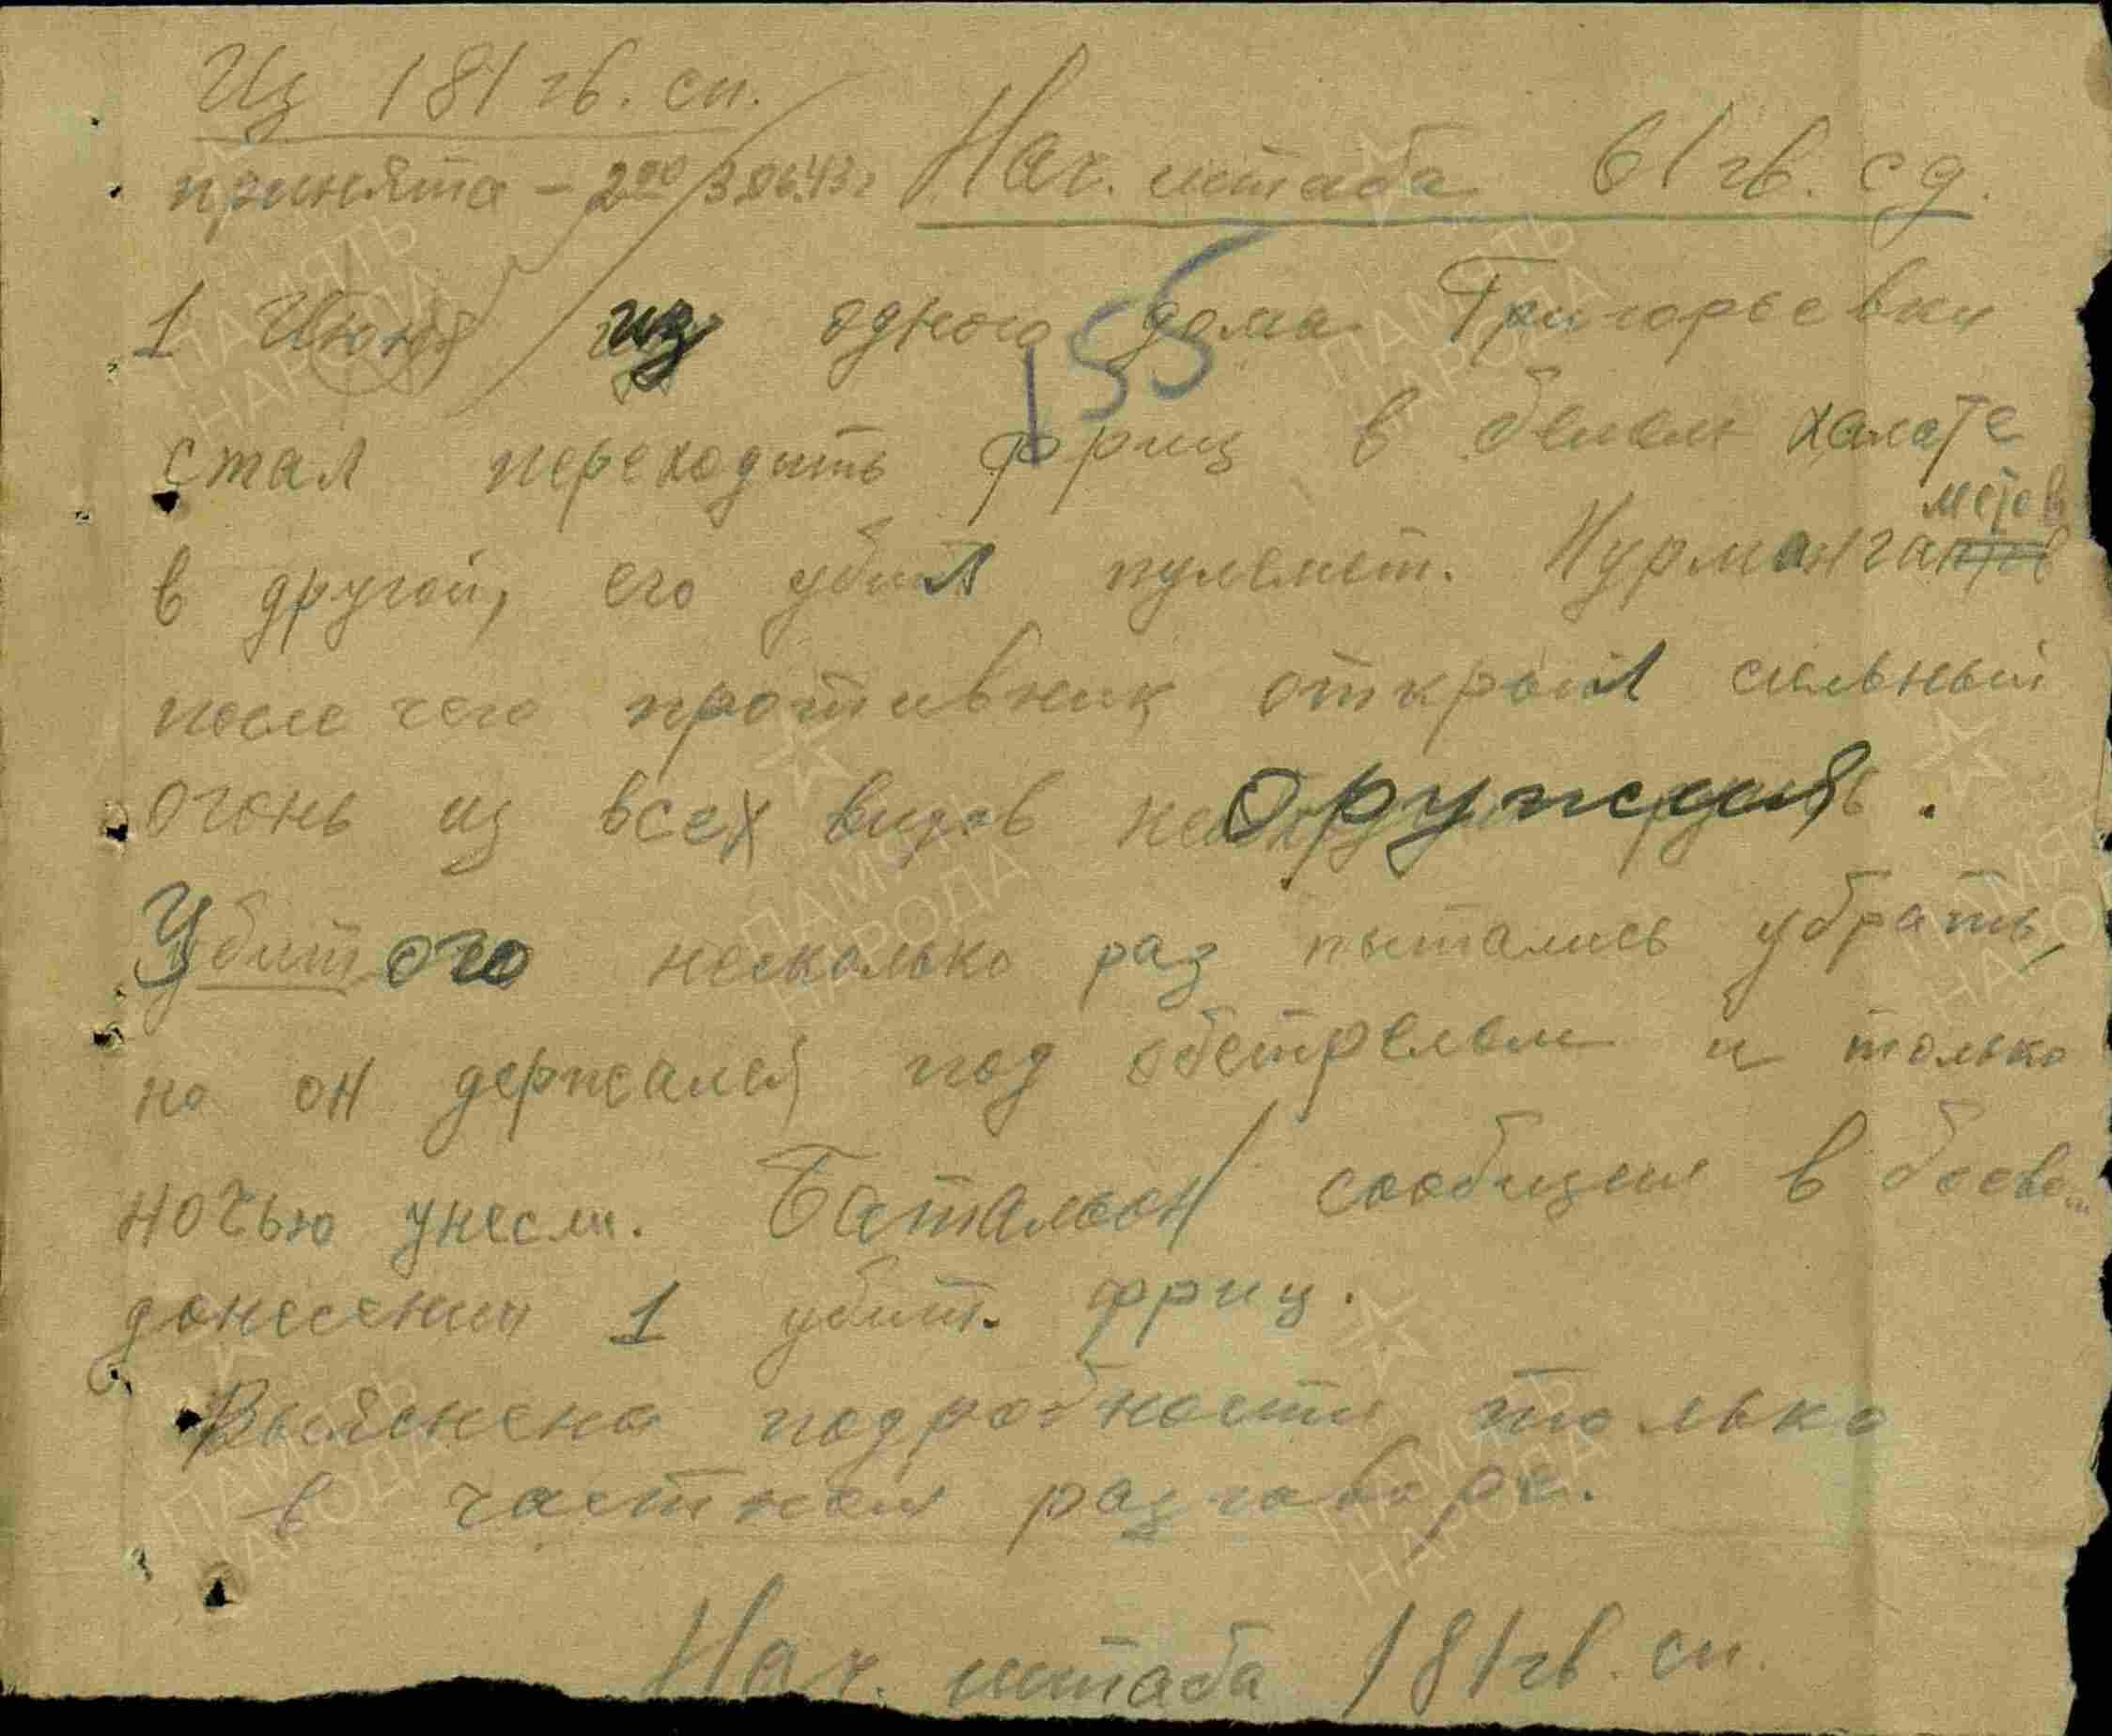 Из 181 гв. сп.
принята – 2⁰⁰ 3.06.43г Нач. штаба 61 гв. сд.
155
1 Июня из одного дома Григорьевки
стал переходить фриц в белом халате
в другой, его убил пулемет. Курманга
метов
после чего противник открыл сильный
огонь из всех видов оружия.
Убитого несколько раз пытались убрать,
но он держался под обстрелом и только
ночью унесли. Баталион сообщил в боевом
донесении 1 убит. фриц.
Выяснено подробности только
в частном разговоре.
Нач. штаба 181 гв. сп.
ПАМЯТЬ НАРОДА
ПАМЯТЬ НАРОДА
ПАМЯТЬ НАРОДА
ПАМЯТЬ НАРОДА
ПАМЯТЬ НАРОДА
ПАМЯТЬ НАРОДА